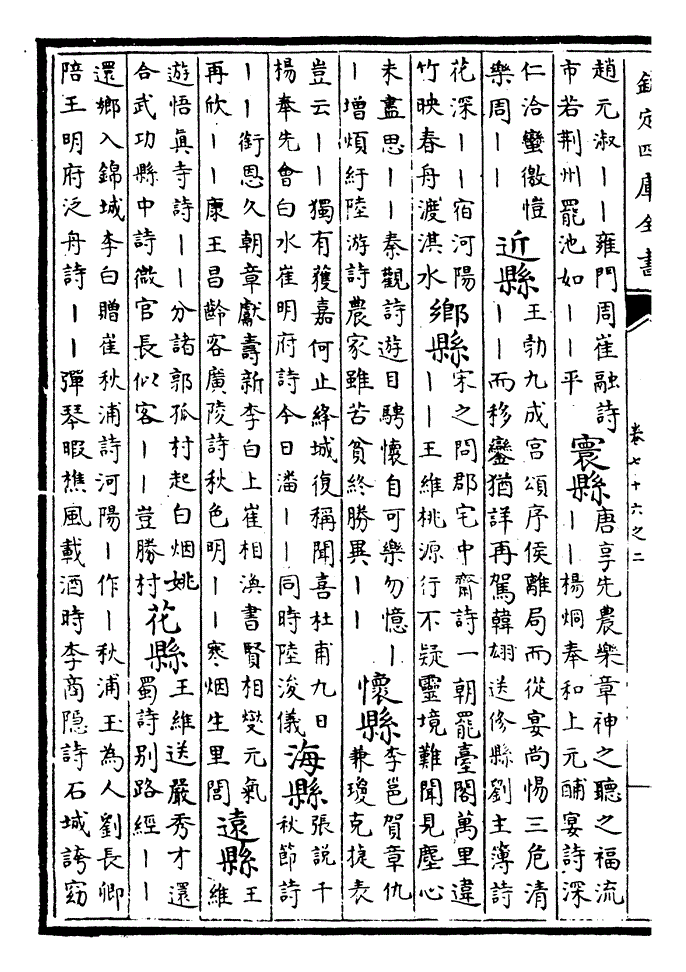 欽定四庫全書
卷七十六之二
趙元淑丨丨雍門周崔融詩
市若荆州罷池如丨丨平
寰縣
唐享先農樂章神之聽之福流
丨丨楊炯奉和上元酺宴詩深
仁洽蠻徼愷
樂周丨丨
近縣
王勃九成宫頌序侯離局而從宴尚惕三危清
丨丨而移鑾猶詳再駕韓翃送修縣劉主簿詩
花深丨丨宿河陽
竹映春舟渡淇水
鄉縣
宋之問郡宅中齋詩一朝罷臺閣萬里違
丨丨王維桃源行不疑靈境難聞見塵心
未盡思丨丨秦觀詩遊目騁懷自可樂勿憶丨
丨增煩紆陸游詩農家雖苦貧終勝異丨丨
懷縣
李邕賀章仇
兼瓊克捷表
豈云丨丨獨有獲嘉何止絳城復稱聞喜杜甫九日
楊奉先會白水崔明府詩今日潘丨丨同時陸浚儀
海縣
張説千
秋節詩
丨丨銜恩久朝章獻壽新李白上崔相渙書賢相燮元氣
再欣丨丨康王昌齡客廣陵詩秋色明丨丨寒烟生里閭
遠縣
王
維
遊悟真寺詩丨丨分諸郭孤村起白烟姚
合武功縣中詩微官長似客丨丨豈勝村
花縣
王維送嚴秀才還
蜀詩别路經丨丨
還鄉入錦城李白贈崔秋浦詩河陽丨作丨秋浦玉為人劉長卿
陪王明府泛舟詩丨丨彈琴暇樵風載酒時李商隐詩石城誇窈